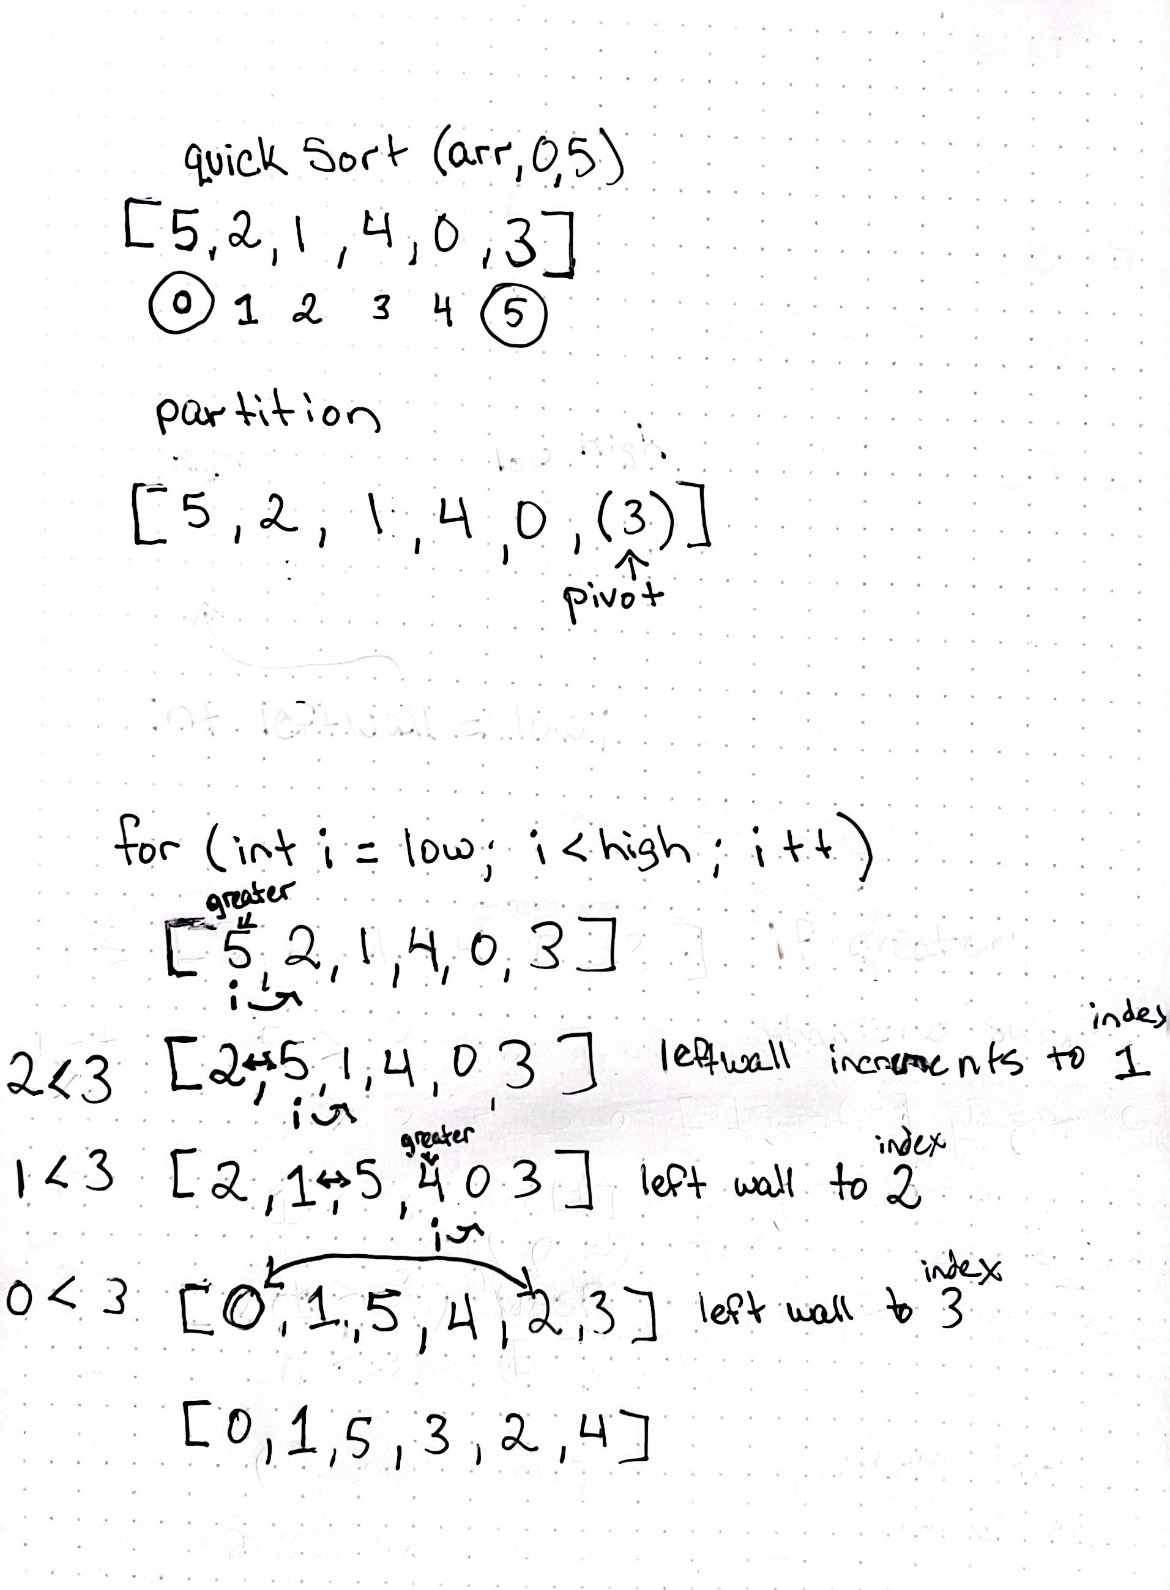 quick Sort (arr, 0,5)
[5, 2, 1, 4, 0, 3]
0 1 2 3 4 5
partition
[5, 2, 1, 4, 0, (3)]
↑
pivot
for (int i = low; i < high; i++)
greater
[5, 2, 1, 4, 0, 3]
i
index
2<3 [2↔, 5, 1, 4, 0, 3] leftwall increments to 1
i
greater index
1<3 [2, 1↔, 5, 4 0 3] left wall to 2
i
index
0<3 [0, 1, 5, 4, 2, 3] left wall to 3
[0, 1, 5, 3, 2, 4]